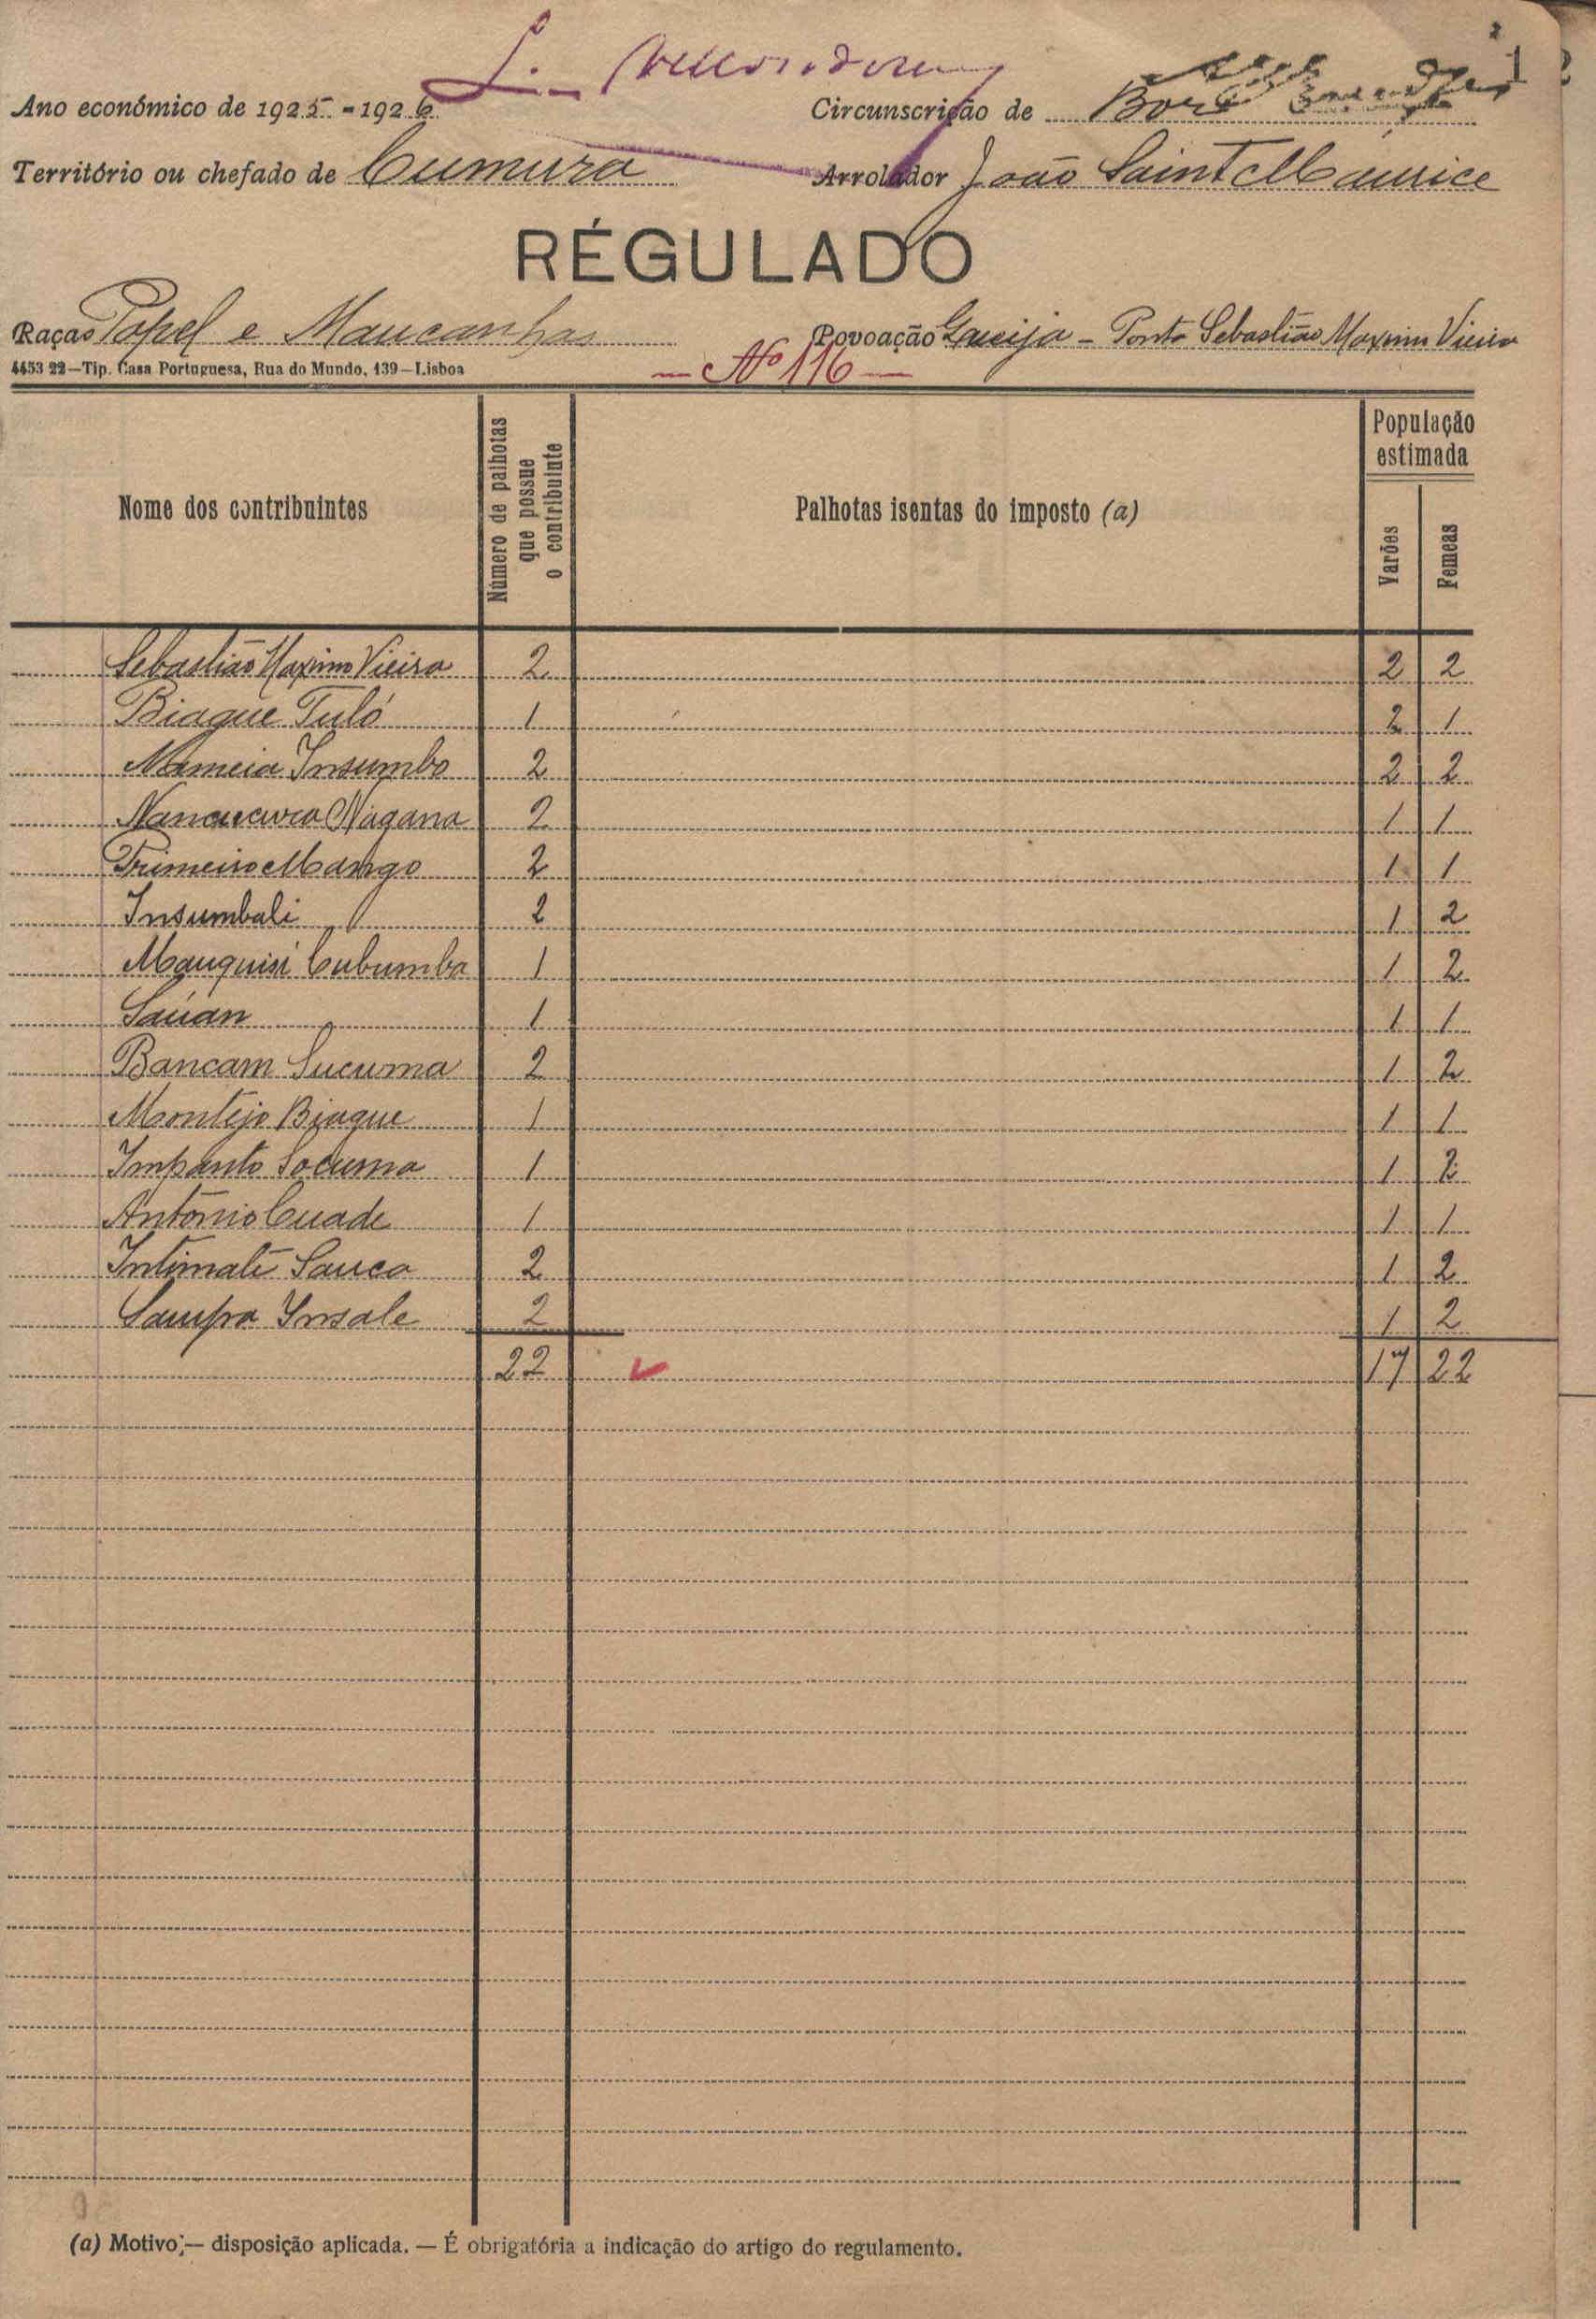 1
Ano económico de 1925-1926 Circunscrição de Bor
Território ou chefado de Cumura Arrolador João Saint Maurice
RÉGULADO
Raças Papel e Mancanhas Povoação - Ponta Sebastião Maximo Vieira
4453 22—Tip. Casa Portuguesa, Rua do Mundo, 139—Lisboa — Nº 116 —
Nome dos contribuintes Número de palhotas que possue o contribuinte Palhotas isentas do imposto (a) População estimada Varões Femeas
Sebastião Maximo Vieira 2 2 2
Biague Tuló 1 2 1
Nameia Insumbo 2 2 2
Nagana 2 1 1
Primeiro Mango 2 1 1
Insumbali 2 1 2
Cubumba 1 1 2
Saúan 1 1 1
Bancam Sucuma 2 1 2
Montejo Biague 1 1 1
Impanto Socuma 1 1 2
António Cuade 1 1 1
Intimate Sauca 2 1 2
Sampa Insale 2 1 2
22 17 22
(a) Motivo;— disposição aplicada. — É obrigatória a indicação do artigo do regulamento.